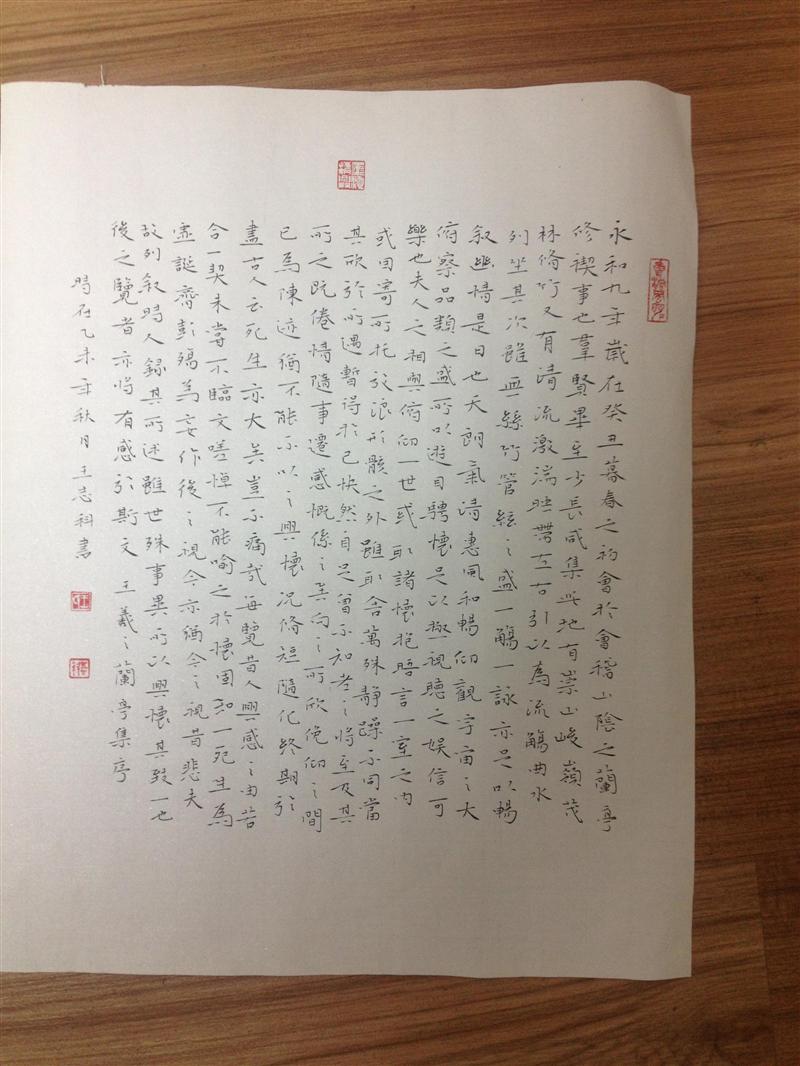 永和九年歲在癸丑暮春之初會於會稽山陰之蘭亭
修禊事也羣賢畢至少長咸集此地有崇山峻嶺茂
林脩竹又有清流激湍映帶左右引以為流觴曲水
列坐其次雖無絲竹管絃之盛一觴一詠亦足以暢
叙幽情是日也天朗氣清惠風和暢仰觀宇宙之大
俯察品類之盛所以遊目騁懷足以極視聽之娛信可
樂也夫人之相與俯仰一世或取諸懷抱晤言一室之內
或因寄所托放浪形骸之外雖取舍萬殊靜躁不同當
其欣於所遇暫得於己快然自足曾不知老之將至及其
所之既倦情隨事遷感慨係之矣向之所欣俛仰之間
已為陳迹猶不能不以之興懷況脩短隨化終期於
盡古人云死生亦大矣豈不痛哉每覽昔人興感之由若
合一契未嘗不臨文嗟悼不能喻之於懷固知一死生為
虛誕齊彭殤為妄作後之視今亦猶今之視昔悲夫
故列叙時人錄其所述雖世殊事異所以興懷其致一也
後之覽者亦將有感於斯文 王羲之蘭亭集序
時在乙未年秋月王志科書